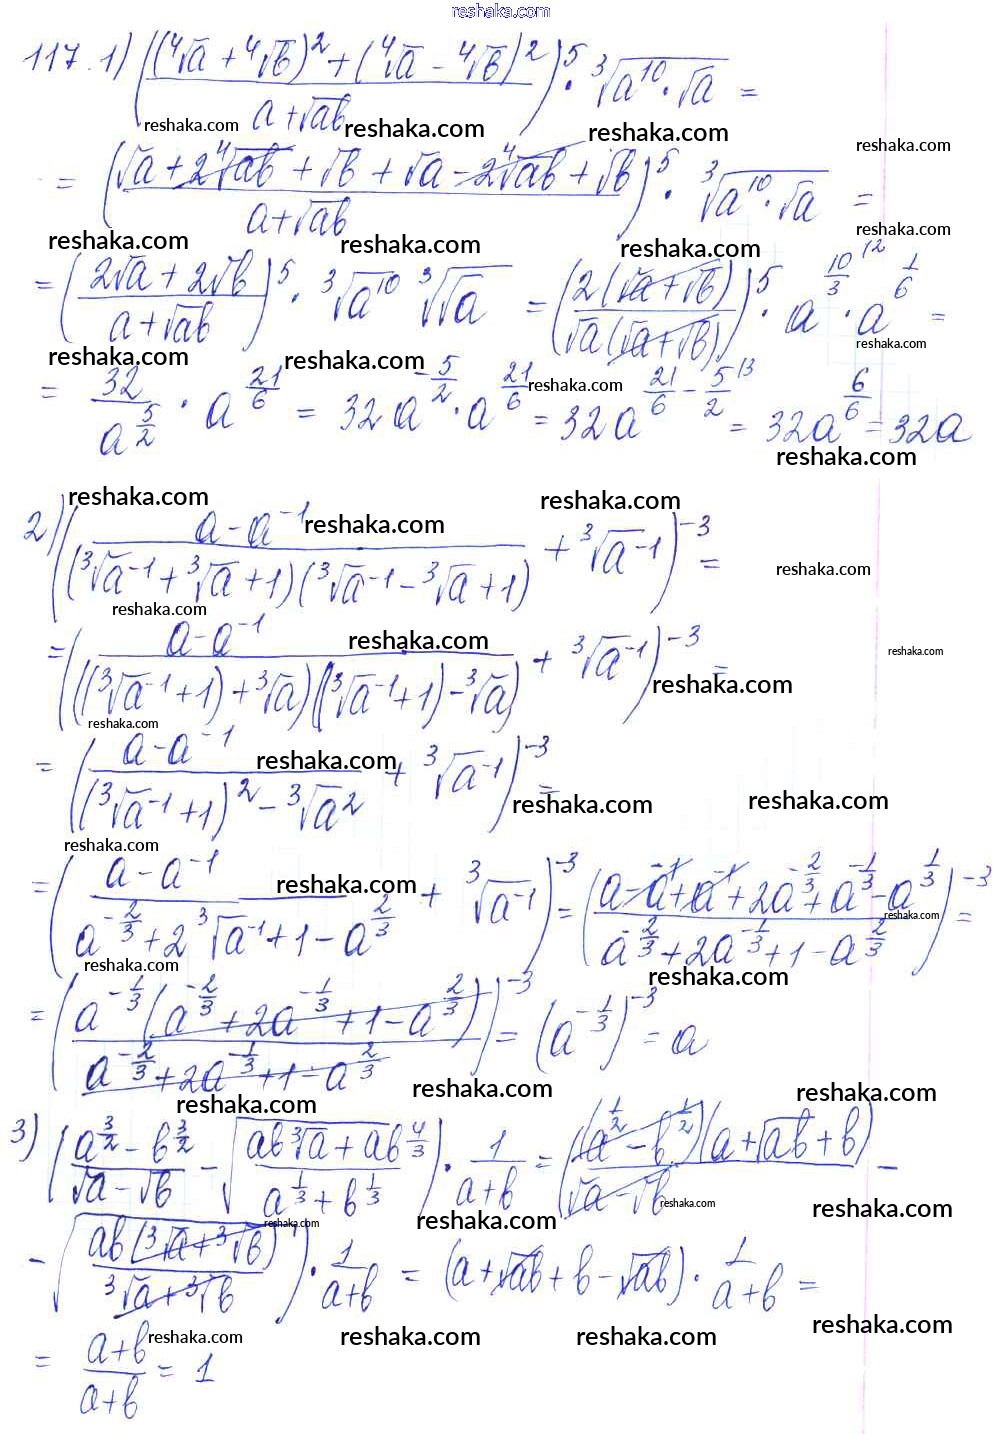 reshaka.com
117.1) (((⁴√a + ⁴√b)² + (⁴√a - ⁴√b)²)/(a+√ab))⁵ · ³√(a¹⁰·√a) =
reshaka.com reshaka.com reshaka.com reshaka.com
= ((√a + 2⁴√ab + √b + √a - 2⁴√ab + √b)/(a+√ab))⁵ · ³√(a¹⁰·√a) =
reshaka.com reshaka.com reshaka.com reshaka.com reshaka.com
= ((2√a + 2√b)/(a+√ab))⁵ · ³√a¹⁰ ³√√a = (2(√a+√b)/(√a(√a+√b)))⁵ · a^(10/3)^(\2) · a^(1/6) =
reshaka.com reshaka.com reshaka.com reshaka.com
= 32/a^(5/2) · a^(21/6) = 32a^(-5/2) · a^(21/6) = 32a^(21/6 - 5/2^(\3)) = 32a^(6/6) = 32a
reshaka.com
reshaka.com reshaka.com reshaka.com
2) ((a-a⁻¹)/((³√a⁻¹ + ³√a + 1)(³√a⁻¹ - ³√a + 1)) + ³√a⁻¹)⁻³ =
reshaka.com reshaka.com
= ((a-a⁻¹)/(((³√a⁻¹+1)+³√a)((³√a⁻¹+1)-³√a)) + ³√a⁻¹)⁻³ =
reshaka.com reshaka.com reshaka.com reshaka.com
= ((a-a⁻¹)/((³√a⁻¹+1)² - ³√a²) + ³√a⁻¹)⁻³ =
reshaka.com reshaka.com reshaka.com reshaka.com
= ((a-a⁻¹)/(a^(-2/3) + 2³√a⁻¹ + 1 - a^(2/3)) + ³√a⁻¹)⁻³ = ((a-a⁻¹+a⁻¹+2a^(-2/3)+a^(-1/3)-a^(1/3))/(a^(-2/3)+2a^(-1/3)+1-a^(2/3)))⁻³ =
reshaka.com reshaka.com reshaka.com reshaka.com
= (a^(-1/3)(a^(-2/3)+2a^(-1/3)+1-a^(2/3))/(a^(-2/3)+2a^(-1/3)+1-a^(2/3)))⁻³ = (a^(-1/3))⁻³ = a
reshaka.com reshaka.com reshaka.com
3) ((a^(3/2) - b^(3/2))/(√a-√b) - √((ab³√a + ab^(4/3))/(a^(1/3)+b^(1/3)))) · 1/(a+b) = ((a^(1/2)-b^(1/2))(a+√ab+b)/(√a-√b) -
reshaka.com reshaka.com reshaka.com reshaka.com
- √(ab(³√a+³√b)/(³√a+³√b))) · 1/(a+b) = (a+√ab+b-√ab) · 1/(a+b) =
reshaka.com reshaka.com reshaka.com reshaka.com
= (a+b)/(a+b) = 1